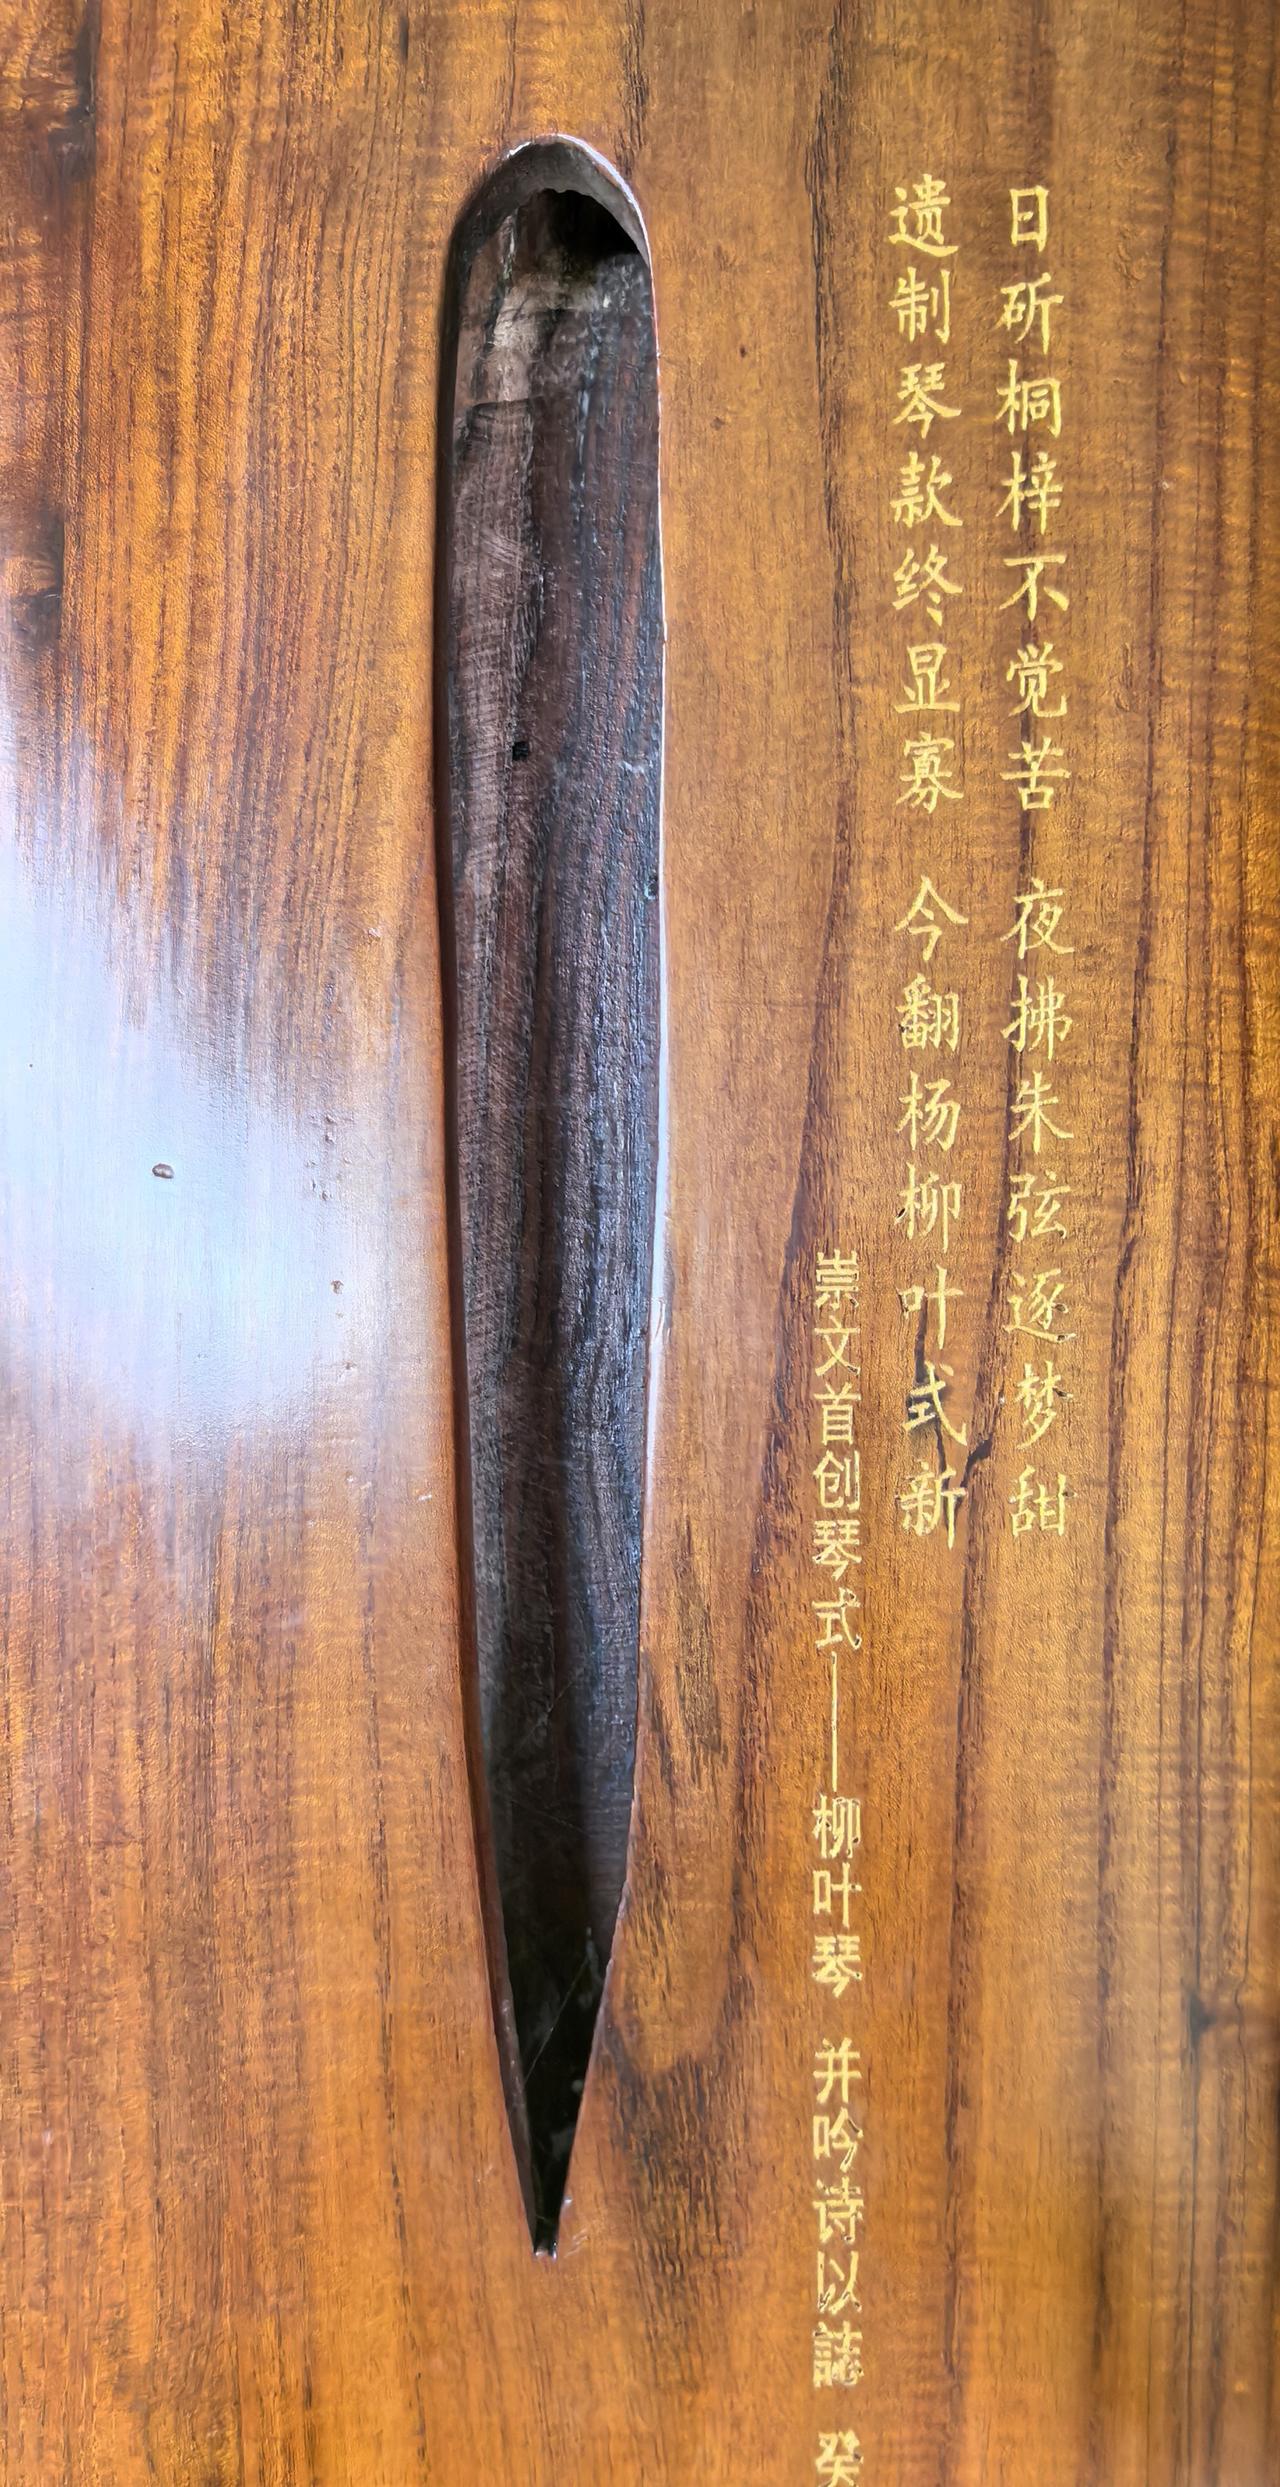 日斫桐梓不觉苦 夜拂朱弦逐梦甜
遗制琴款终显寡 今翻杨柳叶式新
崇文首创琴式——柳叶琴 并吟诗以誌 癸